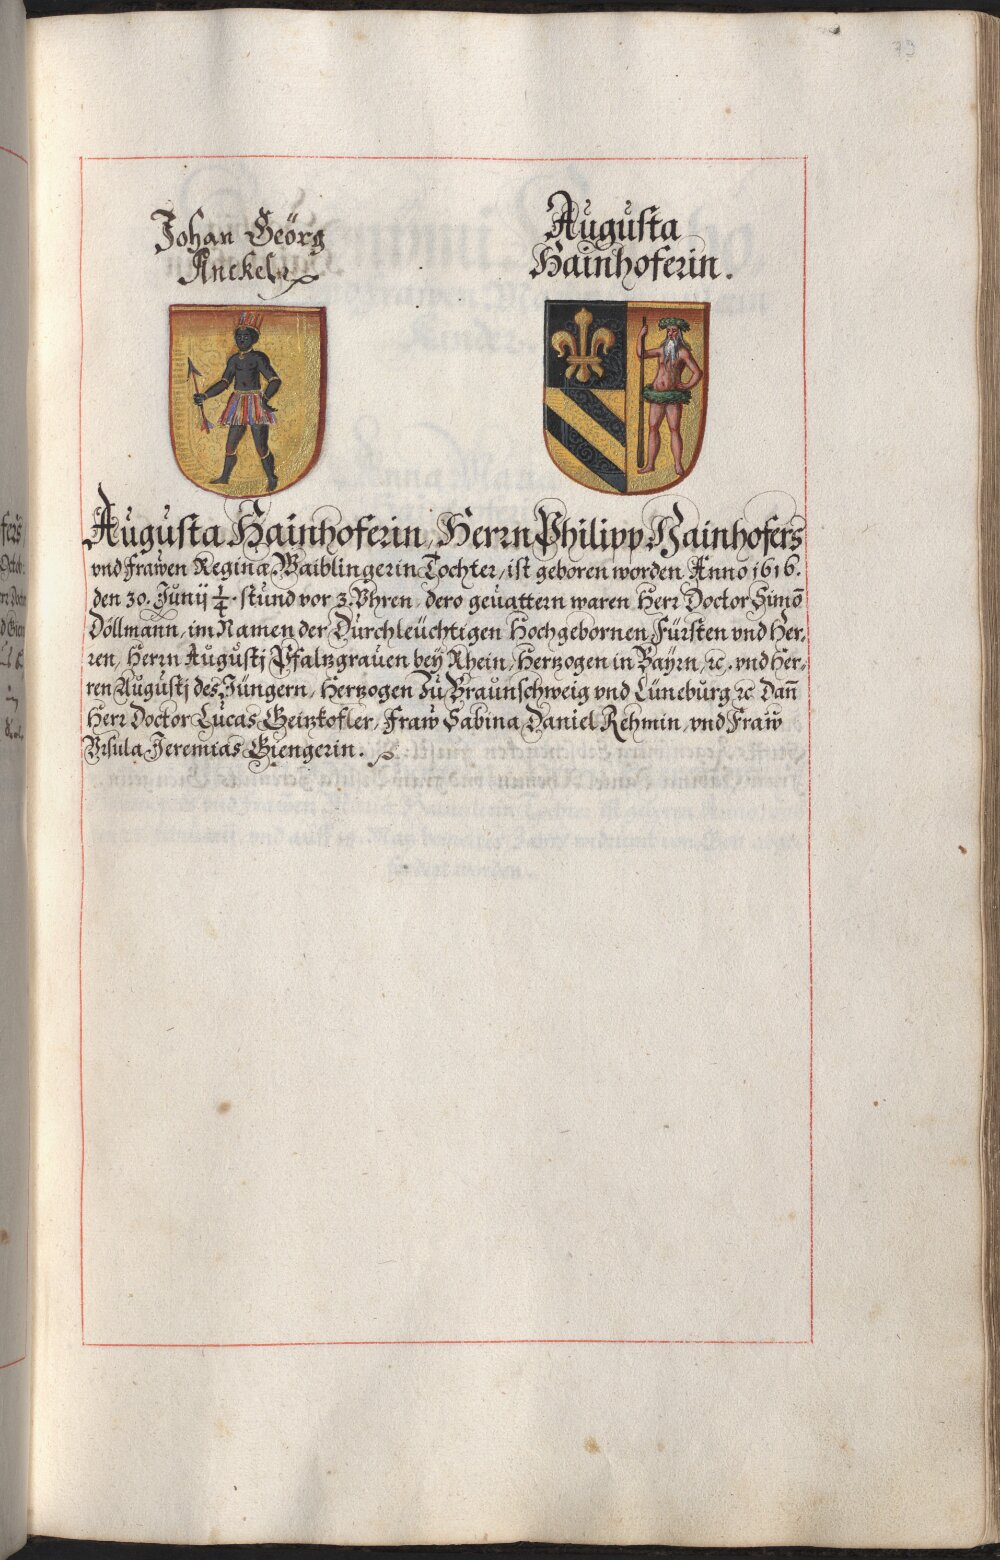 79
Johan Geörg
Anckelr
Augusta
Hainhoferin.
Augusta Hainhoferin, Herrn Philipp Hainhofers
vnd Frawen Regina Waiblingerin Tochter, ist geboren worden Anno 1616.
den 30. Junij ¼. stund vor 3. Vhren, dero geuattern waren Herr Doctor Simõ
Döllmann, im Namen der Durchleüchtigen Hochgebornen Fürsten vnd Her-
ren, Herrn Augustj Pfaltzgrauen bey Rhein, Hertzogen in Bayrn, ꝛc. vnd Her-
ren Augustj des Jüngern, Hertzogen Zu Braunschweig vnd Lüneburg ꝛc Dañ
Herr Doctor Lucas Geitzkofler, Fraw Sabina Daniel Rehmin, vnd Fraw
Vrsula Jeremias Giengerin.